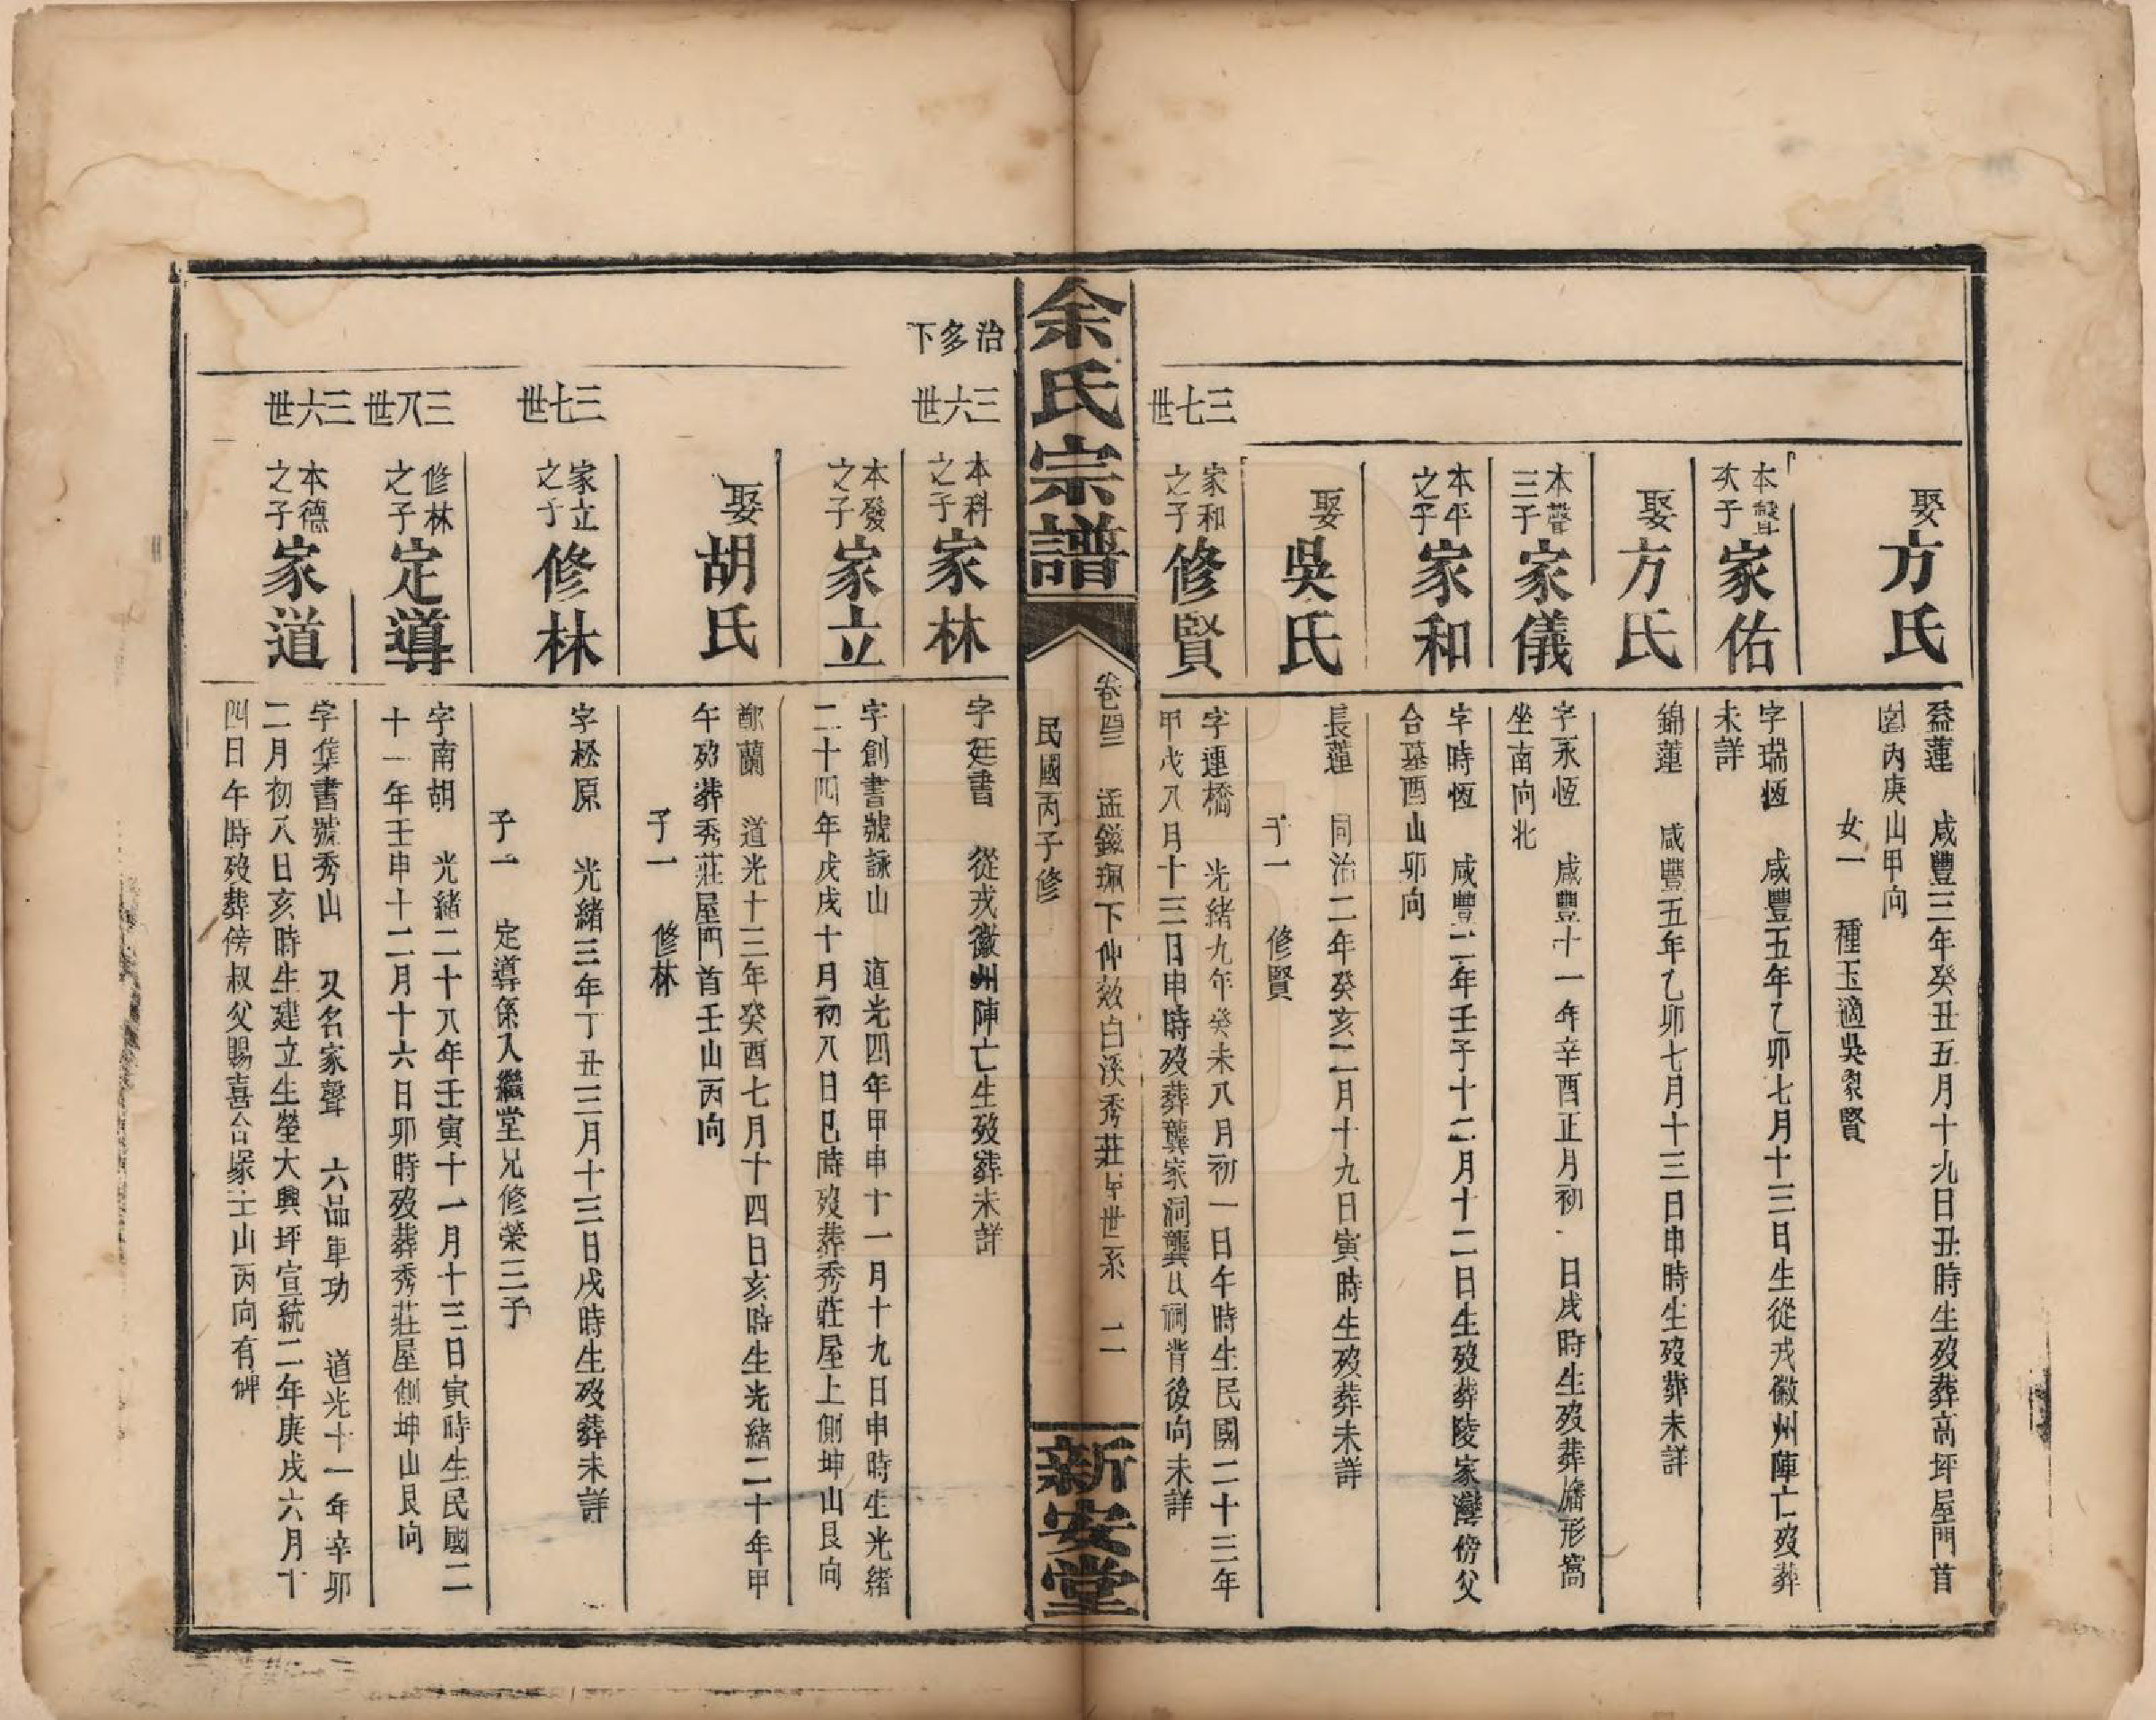 娶方氏
益蓮 咸豐三年癸丑五月十九日丑時生歿葬高坪屋門首
園內庚山甲向
女一 種玉適吳象賢
本聲次子家佑
字瑞恆 咸豐五年乙卯七月十三日生從戎徽州陣亡歿葬
未詳
娶方氏
錦蓮 咸豐五年乙卯七月十三日申時生歿葬未詳
本聲三子家儀
字永恆 咸豐十一年辛酉正月初一日戌時生歿葬旛形窩
坐南向北
本平之子家和
字時恆 咸豐二年壬子十二月十二日生歿葬陵家灣傍父
合墓酉山卯向
娶吳氏
長蓮 同治二年癸亥二月十九日寅時生歿葬未詳
子一 修賢
三七世
家和之子修賢
字連橋 光緒九年癸未八月初一日午時生民國二十三年
甲戌八月十三日申時歿葬龔家洞龔以祠背後向未詳
余氏宗譜
卷四 孟鎡珮下仲效白溪秀莊年世系 二
民國丙子修
新安堂
治多下
三六世
本科之子家林
字廷書 從戎徽州陣亡生歿葬未詳
本發之子家立
字創書號詠山 道光四年甲申十一月十九日申時生光緒
二十四年戊戌十月初八日巳時歿葬秀莊屋上側坤山艮向
娶胡氏
鄰蘭 道光十三年癸酉七月十四日亥時生光緒二十年甲
午歿葬秀莊屋門首壬山丙向
子一 修林
三七世
家立之子修林
字松原 光緒三年丁丑三月十三日戌時生歿葬未詳
子一 定導係入繼堂兄修榮三子
三八世
修林之子定導
字南胡 光緒二十八年壬寅十一月十三日寅時生民國二
十一年壬申十二月十六日卯時歿葬秀莊屋側坤山艮向
三六世
本德之子家道
字集書號秀山 又名家聲 六品軍功 道光十一年辛卯
二月初八日亥時生建立生塋大興坪宣統二年庚戌六月十
四日午時歿葬傍叔父賜喜合塚壬山丙向有碑